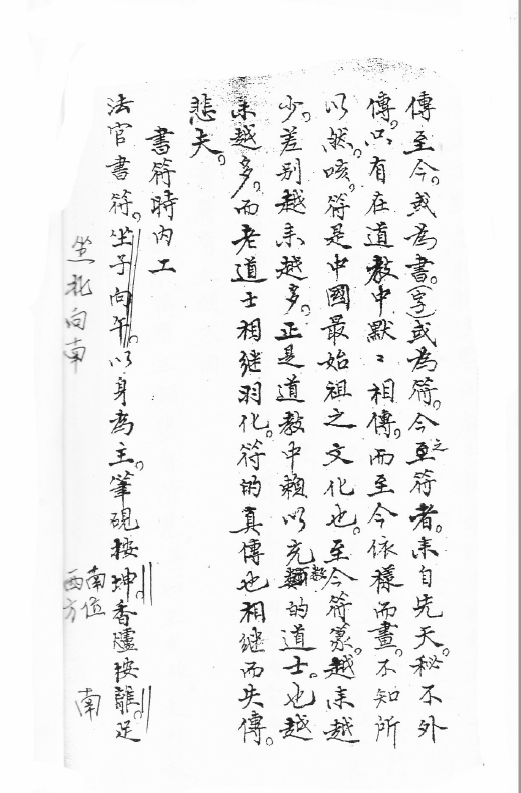 傳至今。或為書。(字)或為符。今之至符者。未自先天。秘不外
傳。只有在道教中默々相傳。而至今依樣而畫。不知所
以然。咳。符是中國最始祖之文化也。至今符篆。越来越
少。差别越来越多。正是道教中賴以充數的道士。也越
来越多。而老道士相継羽化。符的真傳也相継而失傳。
悲夫。
書符時内工
法官書符。坐子向午。以身為主。筆硯按坤。香爐按離。足
坐北向南
南位
西方
南